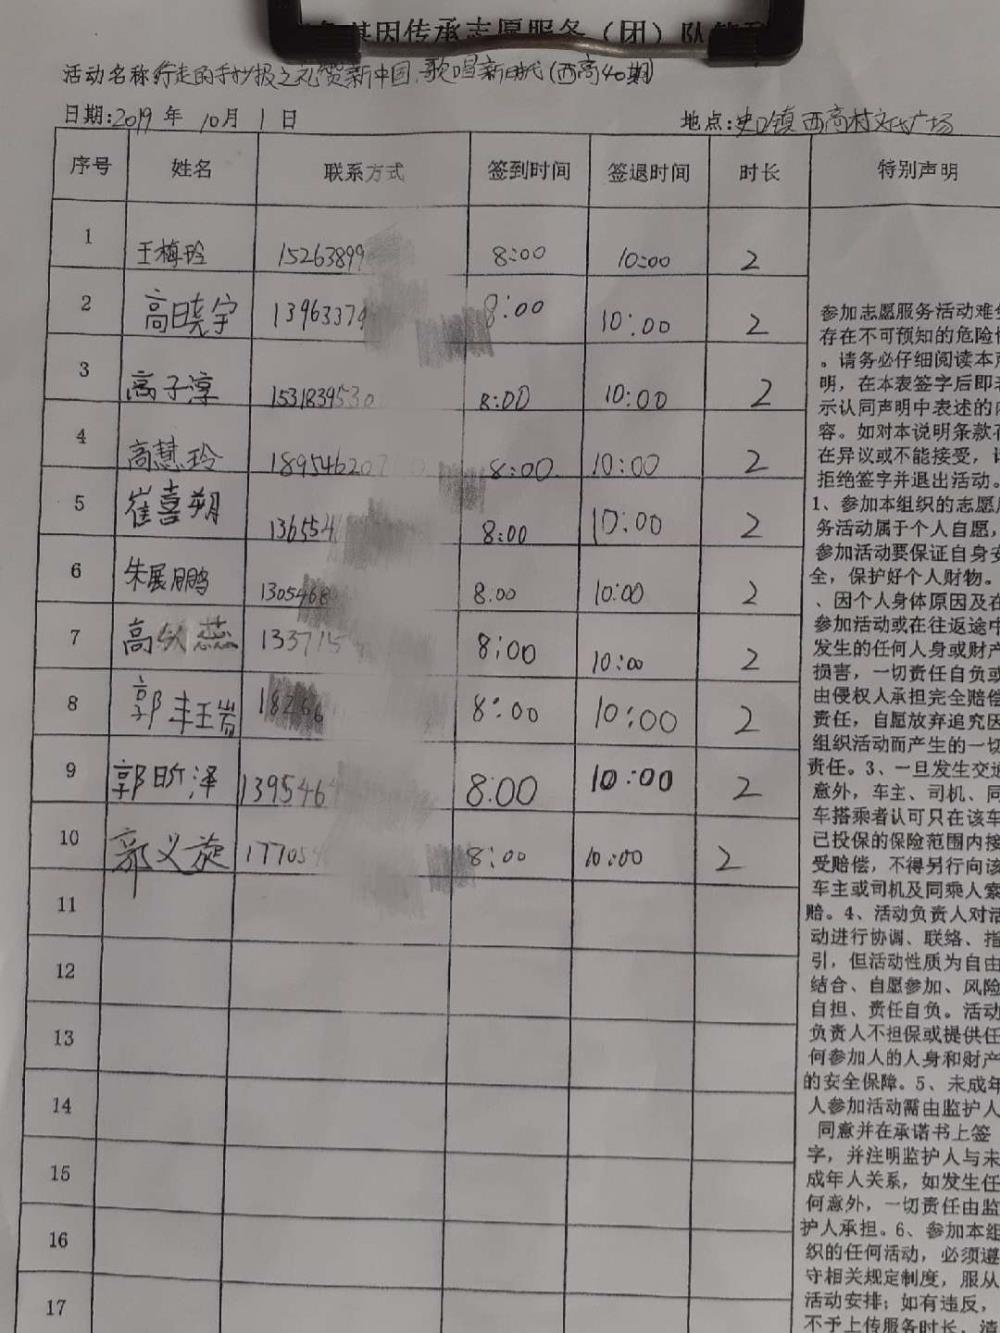 基因传承志愿服务（团）队
活动名称行走的手抄报之礼赞新中国、歌唱新时代(西高40期)
日期:2019 年 10月 1 日 地点:史口镇西高村文化广场
序号 姓名 联系方式 签到时间 签退时间 时长 特别声明
1 王梅玲 15263899 8:00 10:00 2
2 高晓宇 13963374 8:00 10:00 2
3 高子淳 153183953 8:00 10:00 2
4 高慧玲 1895462 8:00 10:00 2
5 崔喜朔 136554 8:00 10:00 2
6 朱展鹏 1305468 8.00 10:00 2
7 高 蕊 133715 8:00 10:00 2
8 郭 18266 8:00 10:00 2
9 郭昕泽 1395464 8:00 10:00 2
10 郭义旋 17705 8:00 10:00 2
11
12
13
14
15
16
17
参加志愿服务活动难
存在不可预知的危险
。请务必仔细阅读本声
明，在本表签字后即表
示认同声明中表述的内
容。如对本说明条款存
在异议或不能接受，请
拒绝签字并退出活动。
1、参加本组织的志愿服
务活动属于个人自愿，
参加活动要保证自身安
全，保护好个人财物。
、因个人身体原因及在
参加活动或在往返途中
发生的任何人身或财产
损害，一切责任自负或
由侵权人承担完全赔偿
责任，自愿放弃追究因
组织活动而产生的一切
责任。3、一旦发生交通
意外，车主、司机、同
车搭乘者认可只在该车
已投保的保险范围内接
受赔偿，不得另行向该
车主或司机及同乘人索
赔。4、活动负责人对活
动进行协调、联络、指
引，但活动性质为自由
结合、自愿参加、风险
自担、责任自负。活动
负责人不担保或提供任
何参加人的人身和财产
的安全保障。5、未成年
人参加活动需由监护人
同意并在承诺书上签
字，并注明监护人与未
成年人关系，如发生任
何意外，一切责任由监
护人承担。6、参加本组
织的任何活动，必须遵
守相关规定制度，服从
活动安排；如有违反，
不予上传服务时长，请